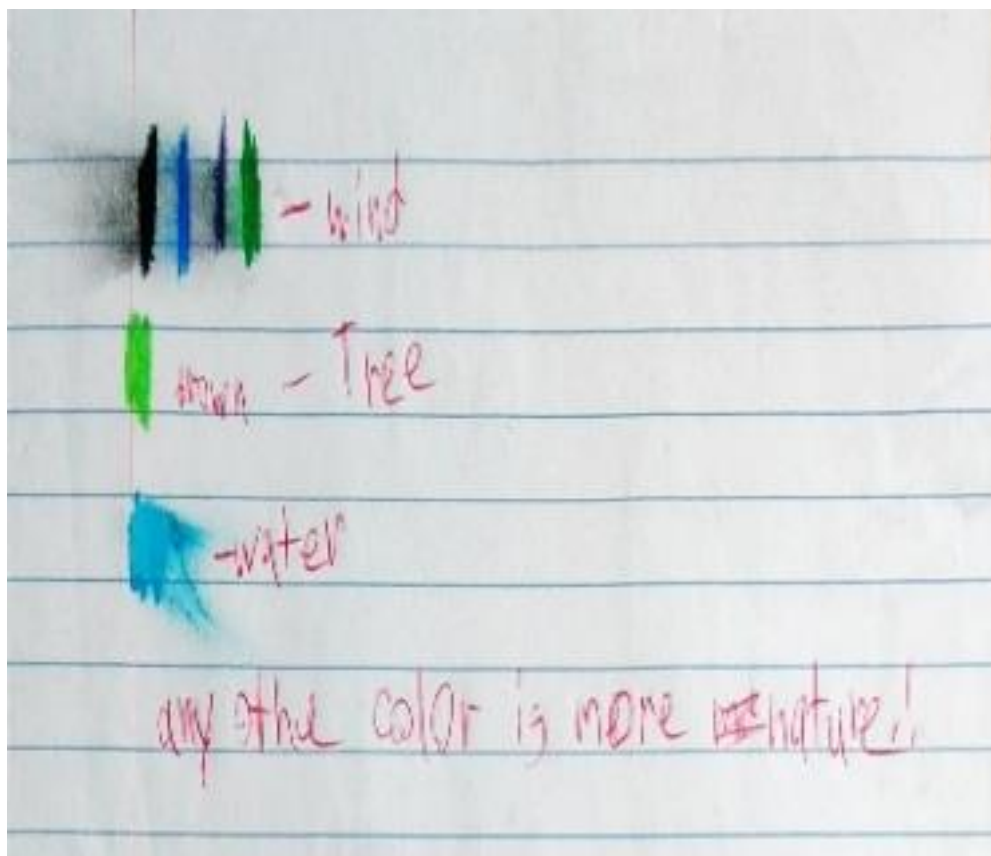 - wind
- Tree
- water
any othe color is more nature!